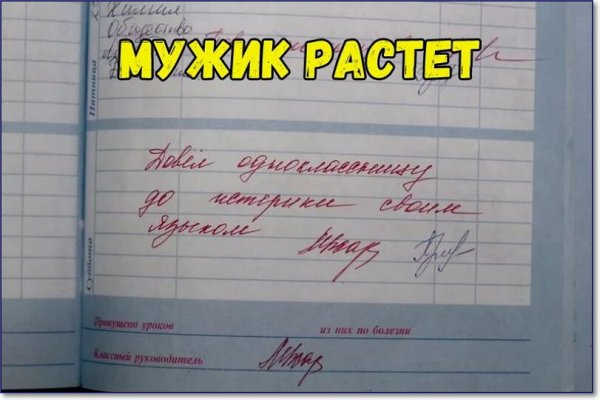 Химия
Общество
МУЖИК РАСТЕТ
Пятница
Довёл одноклассницу
до истерики своим
языком
Суббота
Пропущено уроков из них по болезни
Классный руководитель